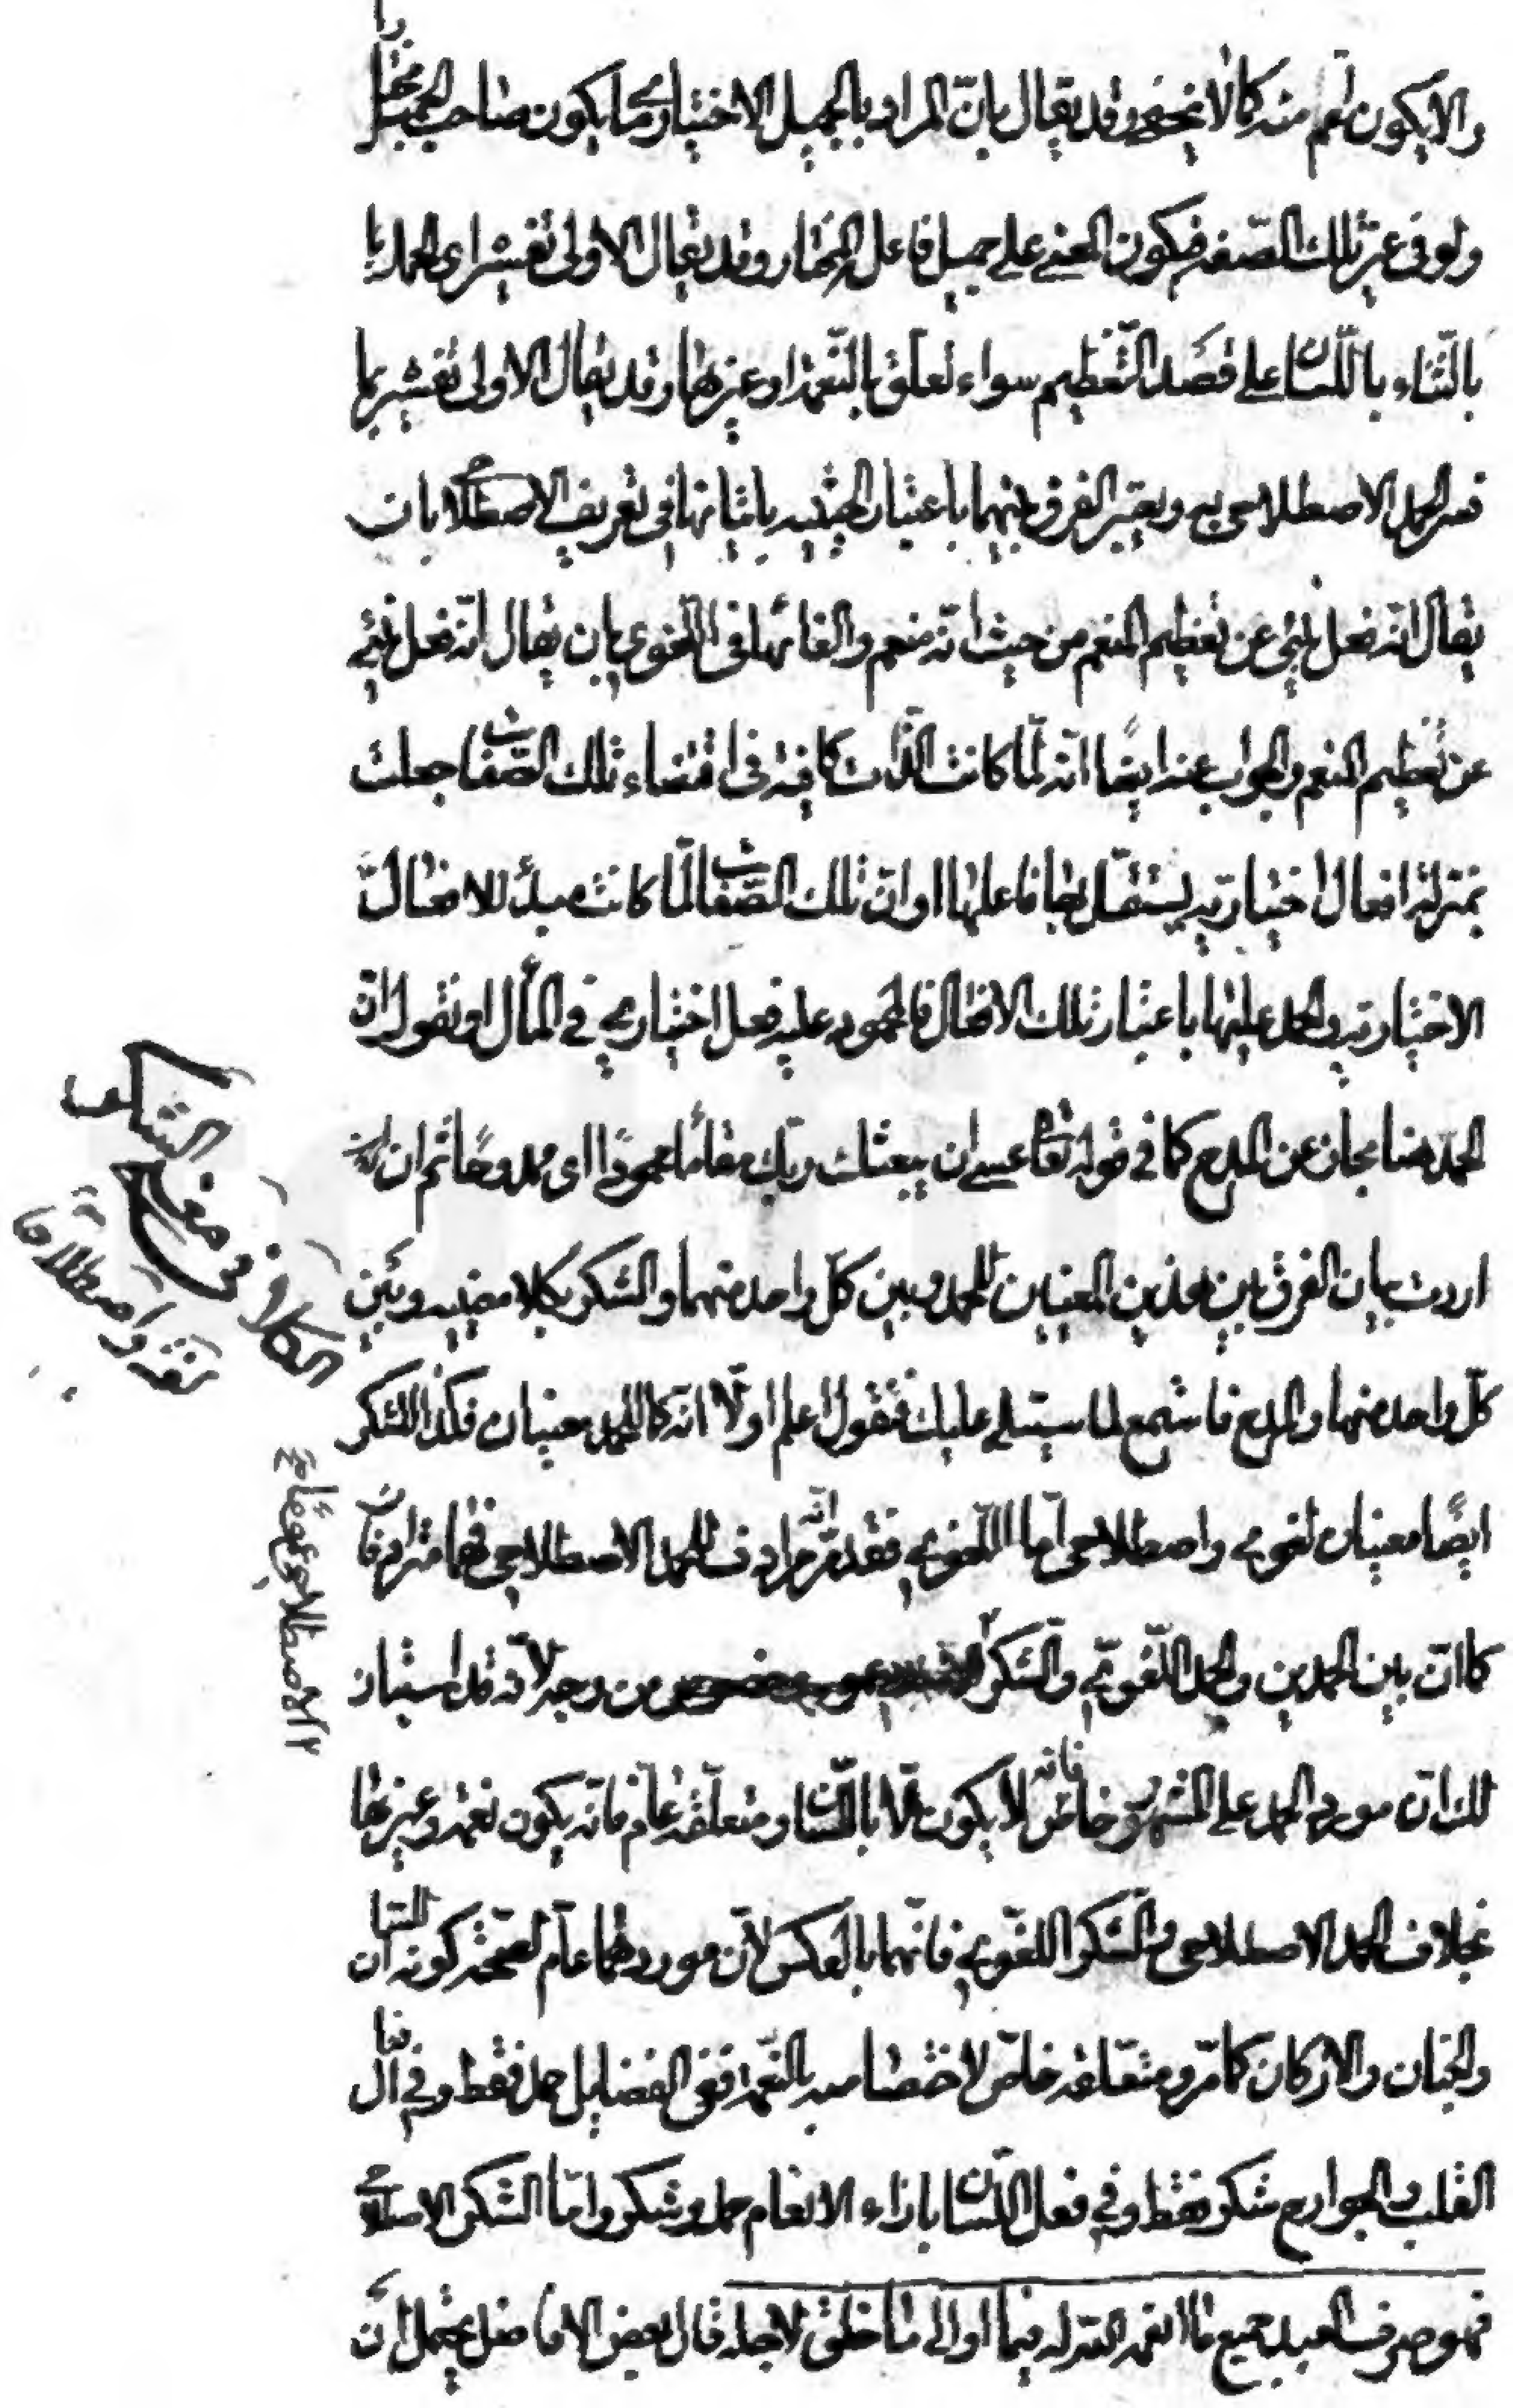 والا يكون اعم منه كما لا يخفى وقد يقال بان المراد بالجميل الاختياري ما يكون صاحبه مختارا
ولو في غير تلك الصفة فيكون المعنى على جميل فاعل المختار وقد يقال الاولى تفسيراى الحمد با
بالثّناء باللّسان على قصد التّعظيم سواء تعلّق بالنّعمة او غيرها وقد يقال الاولى تفسير بما
فسر الحمد الاصطلاحى به ويعتبر الفرق بينهما باعتبار الحيثية باثباتها في تعريف الاصطلاحى بان
يقال انّه فعل ينبئ عن تعظيم المنعم من حيث انّه منعم والغائها فى اللّغوى بان يقال انّه فعل ينبئ
عن تعظيم المنعم والجواب عنه ايضًا انّه لمّا كانت الذّات كافية فى اقتضاء تلك الصّفات جعلت
بمنزلة افعال اختيارية يستقلّ بها فاعلها او انّ تلك الصّفات لمّا كانت مبدأ للافعال
الاختيارية والحمد عليها باعتبار تلك الافعال فالمحمود عليه فعل اختياري في المآل او نقول انّ
الحمد هنا مجاز عن المدح كما في قوله تعالى عسى ان يبعثك ربّك مقامًا محمودًا اى ممدوحًا ثم ان
اردت بيان الفرق بين هذين المعنيين للحمد وبين كلّ واحد منهما والشكر بكلا معنييه وبين
كلّ واحد منهما والمدح فاستمع لما سيتلى عليك فنقول اعلم اولًا انّه كما للحمد معنيان فكذا للشكر
ايضًا معنيان لغوى واصطلاحى امّا اللّغوي فقد مرّ انّه مرادف للحمد الاصطلاحى فهما مترادفان
كما انّ بين الحمدين والحمد اللّغويّ والشّكر من وجه لانّه قد استبان
لك انّ مورد الحمد على المشهور خاصّ فانه لا يكون الّا باللّسان ومتعلّقه عامّ فانّه يكون نعمة وغيرها
بخلاف الحمد الاصطلاحى والشّكر اللغوي فانّهما بالعكس لانّ موردهما عامّ لصحّة كونه اللسان
والجنان والاركان كما مرّ ومتعلّقه خاصّ لاختصاصه بالنّعمة ففى الفضايل حمد فقط وفي افعال
القلب والجوارح شكر فقط وفي فعل اللّسان بازاء الانعام حمد وشكر وامّا الشّكر الاصطلاحى
فهو صرف العبد جميع ما انعمه الله له فيما اوالى ما خلق لاجله قال بعض الافاضل يحتمل ان
الكلام فى معنى الشكر
لغة واصطلاحا
الاصطلاحى عموما